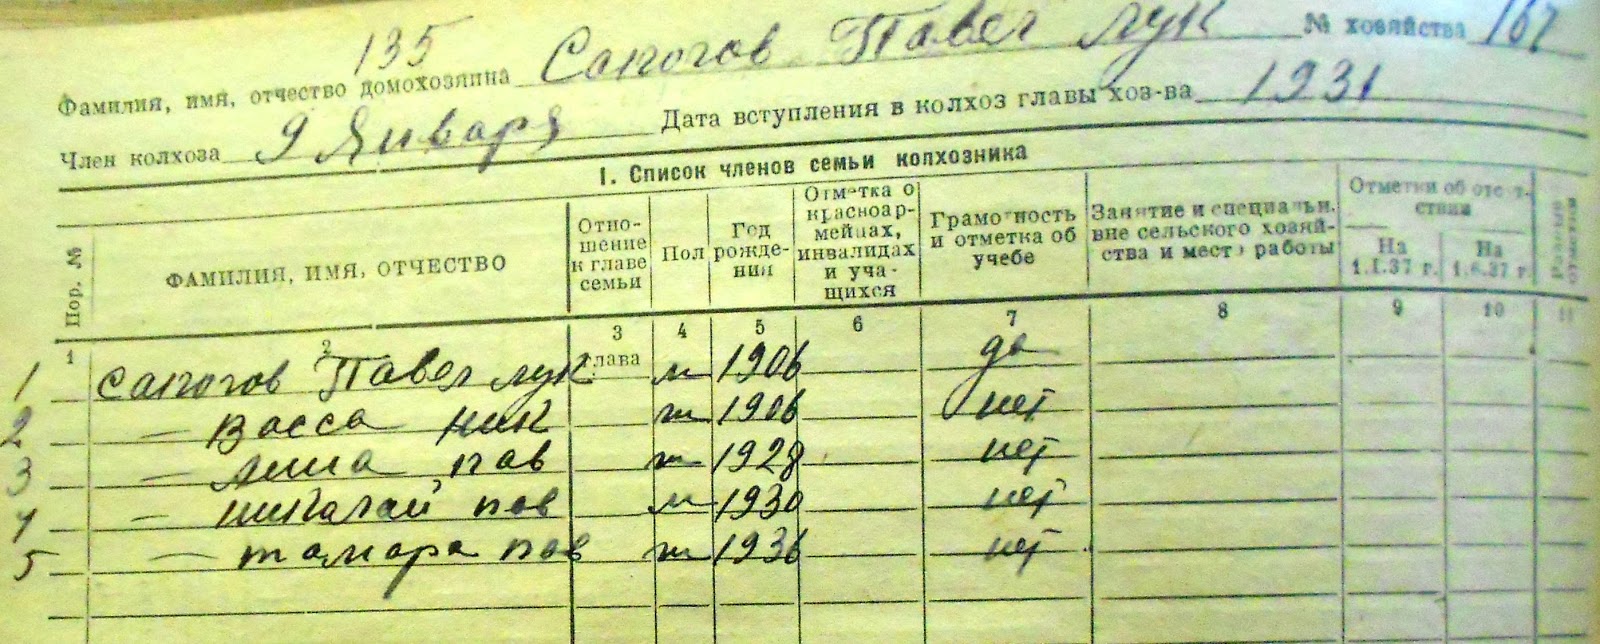 135
Фамилия, имя, отчество домохозяина Сапогов Павел Лук № хозяйства 167
Член колхоза 9 Января Дата вступления в колхоз главы хоз-ва 1931
I. Список членов семьи колхозника
Пор. № ФАМИЛИЯ, ИМЯ, ОТЧЕСТВО Отно-шение к главе семьи Пол Год рожде-ния Отметка о красноар-мейцах, инвалидах и уча-щихся Грамотность и отметка об учебе Занятие и специальн. вне сельского хозяй-ства и место работы Отметки об отсут-ствии На 1.I.37 г. На 1.6.37 г. Разные отметки
1 2 3 4 5 6 7 8 9 10 11
1 Сапогов Павел Лук глава м 1906 да
2 — Васса Ник ж 1906 нет
3 — Лина Пав ж 1928 нет
4 — Николай Пав м 1930 нет
5 — Тамара Пав ж 1936 нет